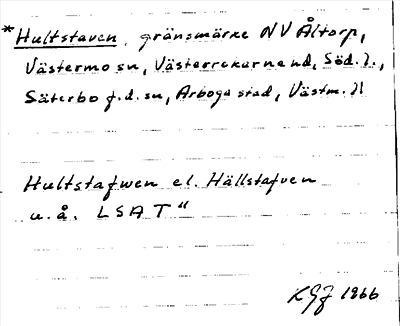 *Hultstaven, gränsmärke NV Åltorp,
Västermo sn, Västerrekarne hd, Söd. l.,
Säterbo f.d. sn, Arboga stad, Västm. l.
Hultstafwen el. Hällstafven
u. å. LSA T"
KGJ 1966